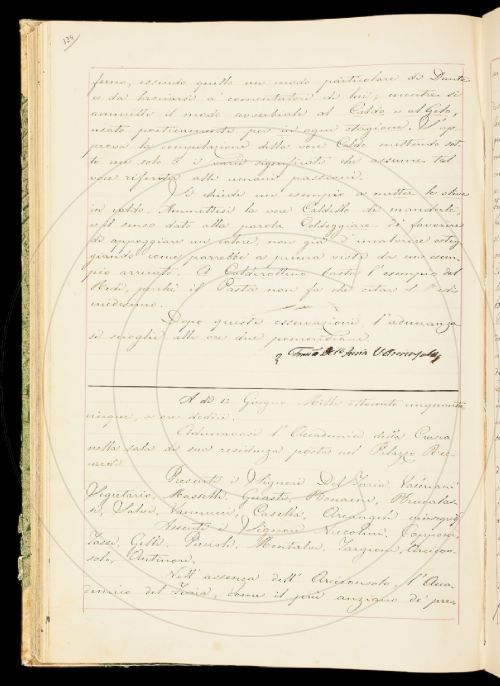 124
ferno, essendo quello un modo particolare di Dante
e da lasciarsi a' comentatori di lui, mentre si
ammette il modo avverbiale al Caldo e al Gelo,
usato poeticamente per in ogni stagione. S'ap-
prova la compilazione della voce Caldo mettendo sot-
to un solo § i varii significati che assume tal
voce riferita alle umane passioni.
Si chiede un esempio a metter le olive
in caldo. Ammettesi la voce Caldello di mandorle,
e il senso dato alla parola Caldeggiare di favorire
di appoggiare un calore, non già d'
giando come parrebbe a prima vista da un esem-
pio arrecato. A Calderottino basta l'esempio del
Redi, poichè il Pasta non fa che citar il Redi
medesimo.
Dopo queste osservazioni l'adunanza
si scioglie alle ore due pomeridiane.
A dì 12 Giugno Mille ottocento cinquanta
cinque, a ore dodici.
Adunavasi l'Accademia della Crusca
nella sala di sua residenza posta nel Palazzo Ric-
cardi.
Presenti i Signori Del Furia, Valeriani
Segretario, Masselli, Guasti, Bonaini, Brucalas-
si, Salvi, Vannucci, Casella, Arcangeli
Assenti i Signori Niccolini, Capponi,
Tassi, Gelli, Puccioli, Montalvi, Targioni, Arcicon-
solo, Antinori.
Nell'assenza dell'Arciconsolo l'Acca-
demico del Furia, come il più anziano de' pre-